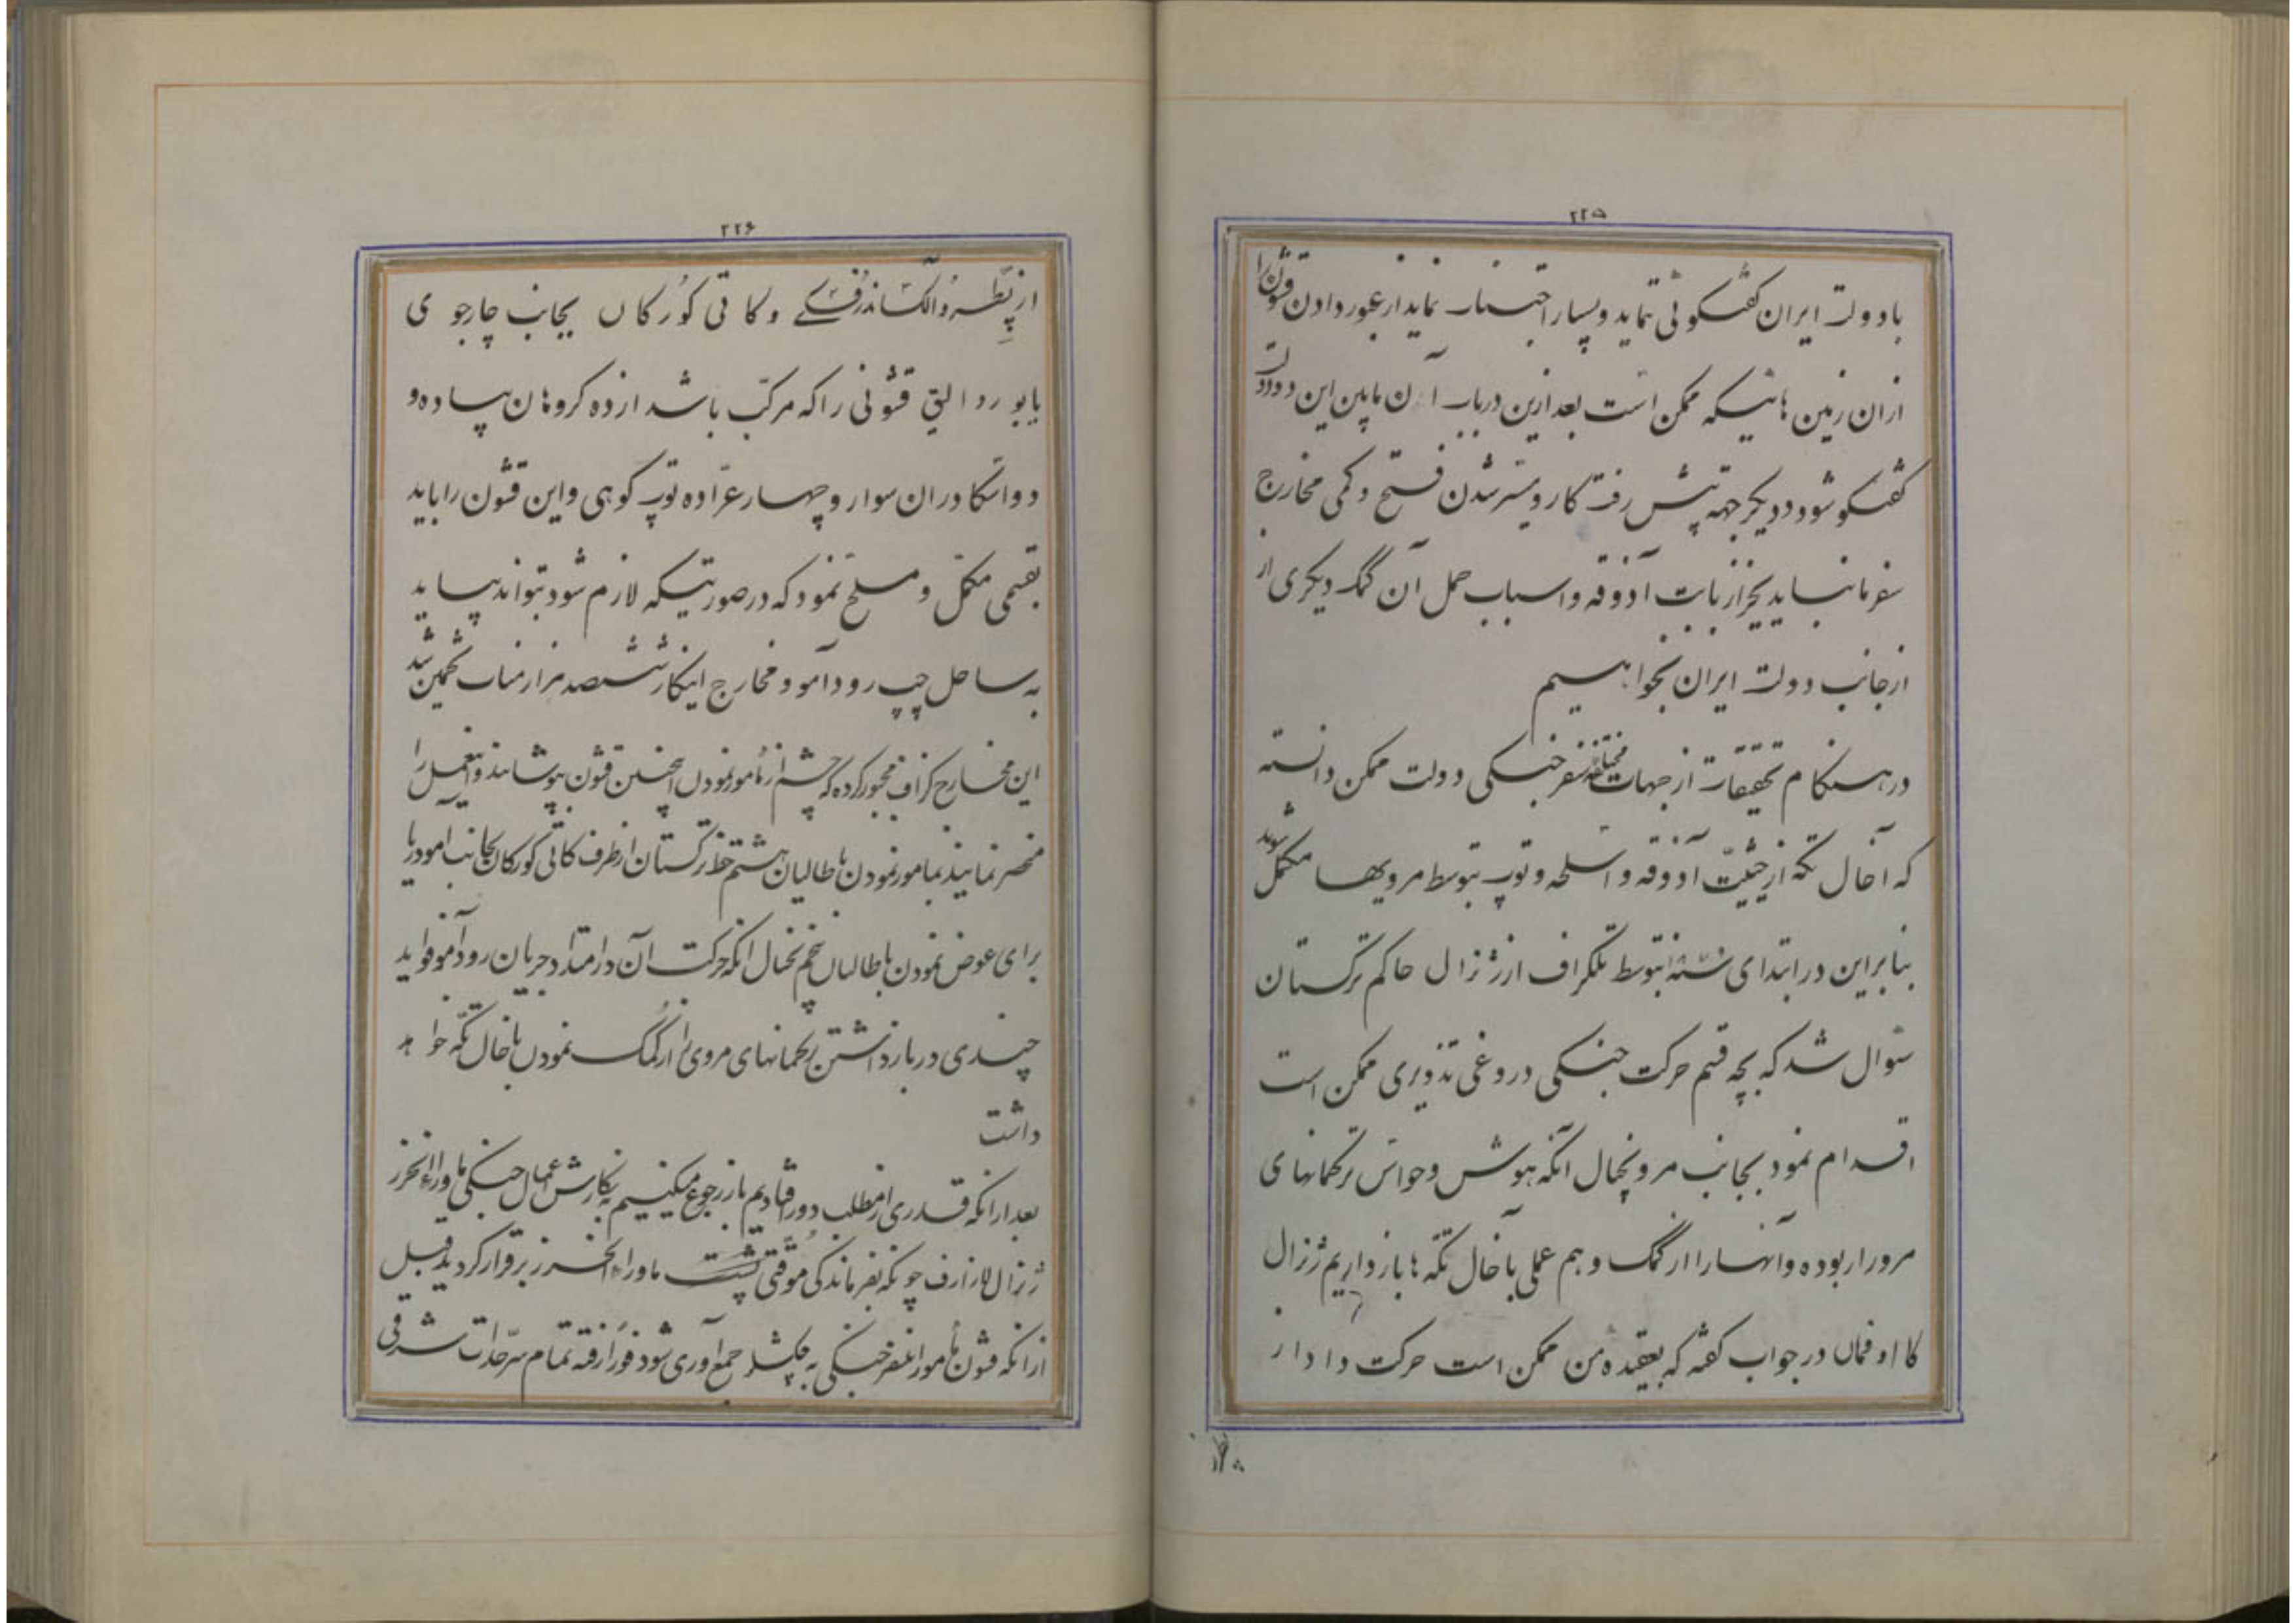 ۲۲۵
با دولت ایران گفتگوئی نماید و بسیار اجتناب نماید از عبور دادن قشون را
از آن زمین هائیکه ممکن است بعد ازین درباب آن مابین این دو دولت
گفتگو شود و دیگر جهة پیش رفت کار و میسر شدن فتح و کمی مخارج
سفر ما نباید بجز از بابت آذوقه و اسباب حمل آن کمک دیگری از
از جانب دولت ایران بخواهیم
در هنگام تحقیقات از جهات مختلفه سفر جنگی دولت ممکن دانسته
که آخال تکه از حیثیّت آذوقه و اسلحه و توپ بتوسط مرویها مکمل شوند
بنابراین در ابتدای بتوسط تلگراف از ژنرال حاکم ترکستان
سئوال شد که بچه قسم حرکت جنگی دروغی تذویری ممکن است
اقدام نمود بجانب مرو بخیال آنکه هوش و حواس ترکمانهای
مرو را ربوده و آنها را از کمک و هم عملی بآخال تکه ها بازداریم ژنرال
کااوفمان در جواب گفته که بعقیده من ممکن است حرکت داد از
۲۲۶
از پطرو الکساندرفسکے و کاتی کورکان بجانب چارجوی
یا بوردالیق قشونی را که مرکب باشد از ده کروهان پیاده و
دو اسکادران سوار و چهار عرّاده توپ کوهی و این قشون را باید
بقسمی مکمّل و مسلح نمود که در صورتیکه لازم شود بتواند بیاید
به ساحل چپ رود آمو و مخارج اینکار ششصد هزار منات تخمین شد
این مخارج گزاف مجبور کرده که چشم از مأمور نمودن اینچنین قشون بپوشانند و اینعمل را
منحصر نمایند بمامور نمودن باطالیان هشتم خط ترکستان از طرف کاتی کورکان بجانب امودریا
برای عوض نمودن باطالیان پنجم بخیال آنکه حرکت آن در امتداد جریان رود آمو فواید
چندی در بازداشتن ترکمانهای مروی را از کُمک نمودن بآخال تکّه خواهد
داشت
بعد از آنکه قدری از مطلب دور افتادیم باز رجوع میکنیم به نگارش اعمال جنگی ماوراءالخزر
ژنرال لازارف چونکه بفرماندگی موقتی ماوراءالخزر برقرار گردید قبل
از آنکه قشون مأمور سفر جنگی به چکشلر جمع آوری شود فوراً رفته تمام سرحدات شرقی